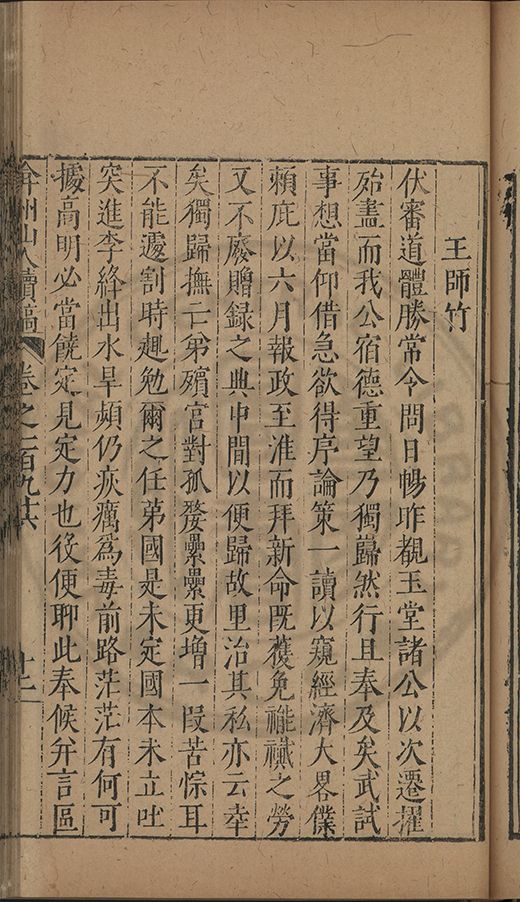 王師竹
伏審道體勝常令問日暢昨覩玉堂諸公以次遷擢
殆盡而我公宿德重望乃獨巋然行且奉及矣武試
事想當仰借急欲得序論策一讀以窺經濟大畧僕
賴庇以六月報政至淮而拜新命既穫免襶之勞
又不廢贈録之典中間以便歸故里治其私亦云幸
矣獨歸撫亡弟殯宮對孤嫠纍纍更增一段苦悰耳
不能遽割時趣勉爾之任苐國是未定國本未立吐
突進李絳出水旱頻仍疾癘爲毒前路茫茫有何可
據高明必當饒定見定力也役便聊此奉候弁言區
弇州山人續稿 卷之一百九十六 十二